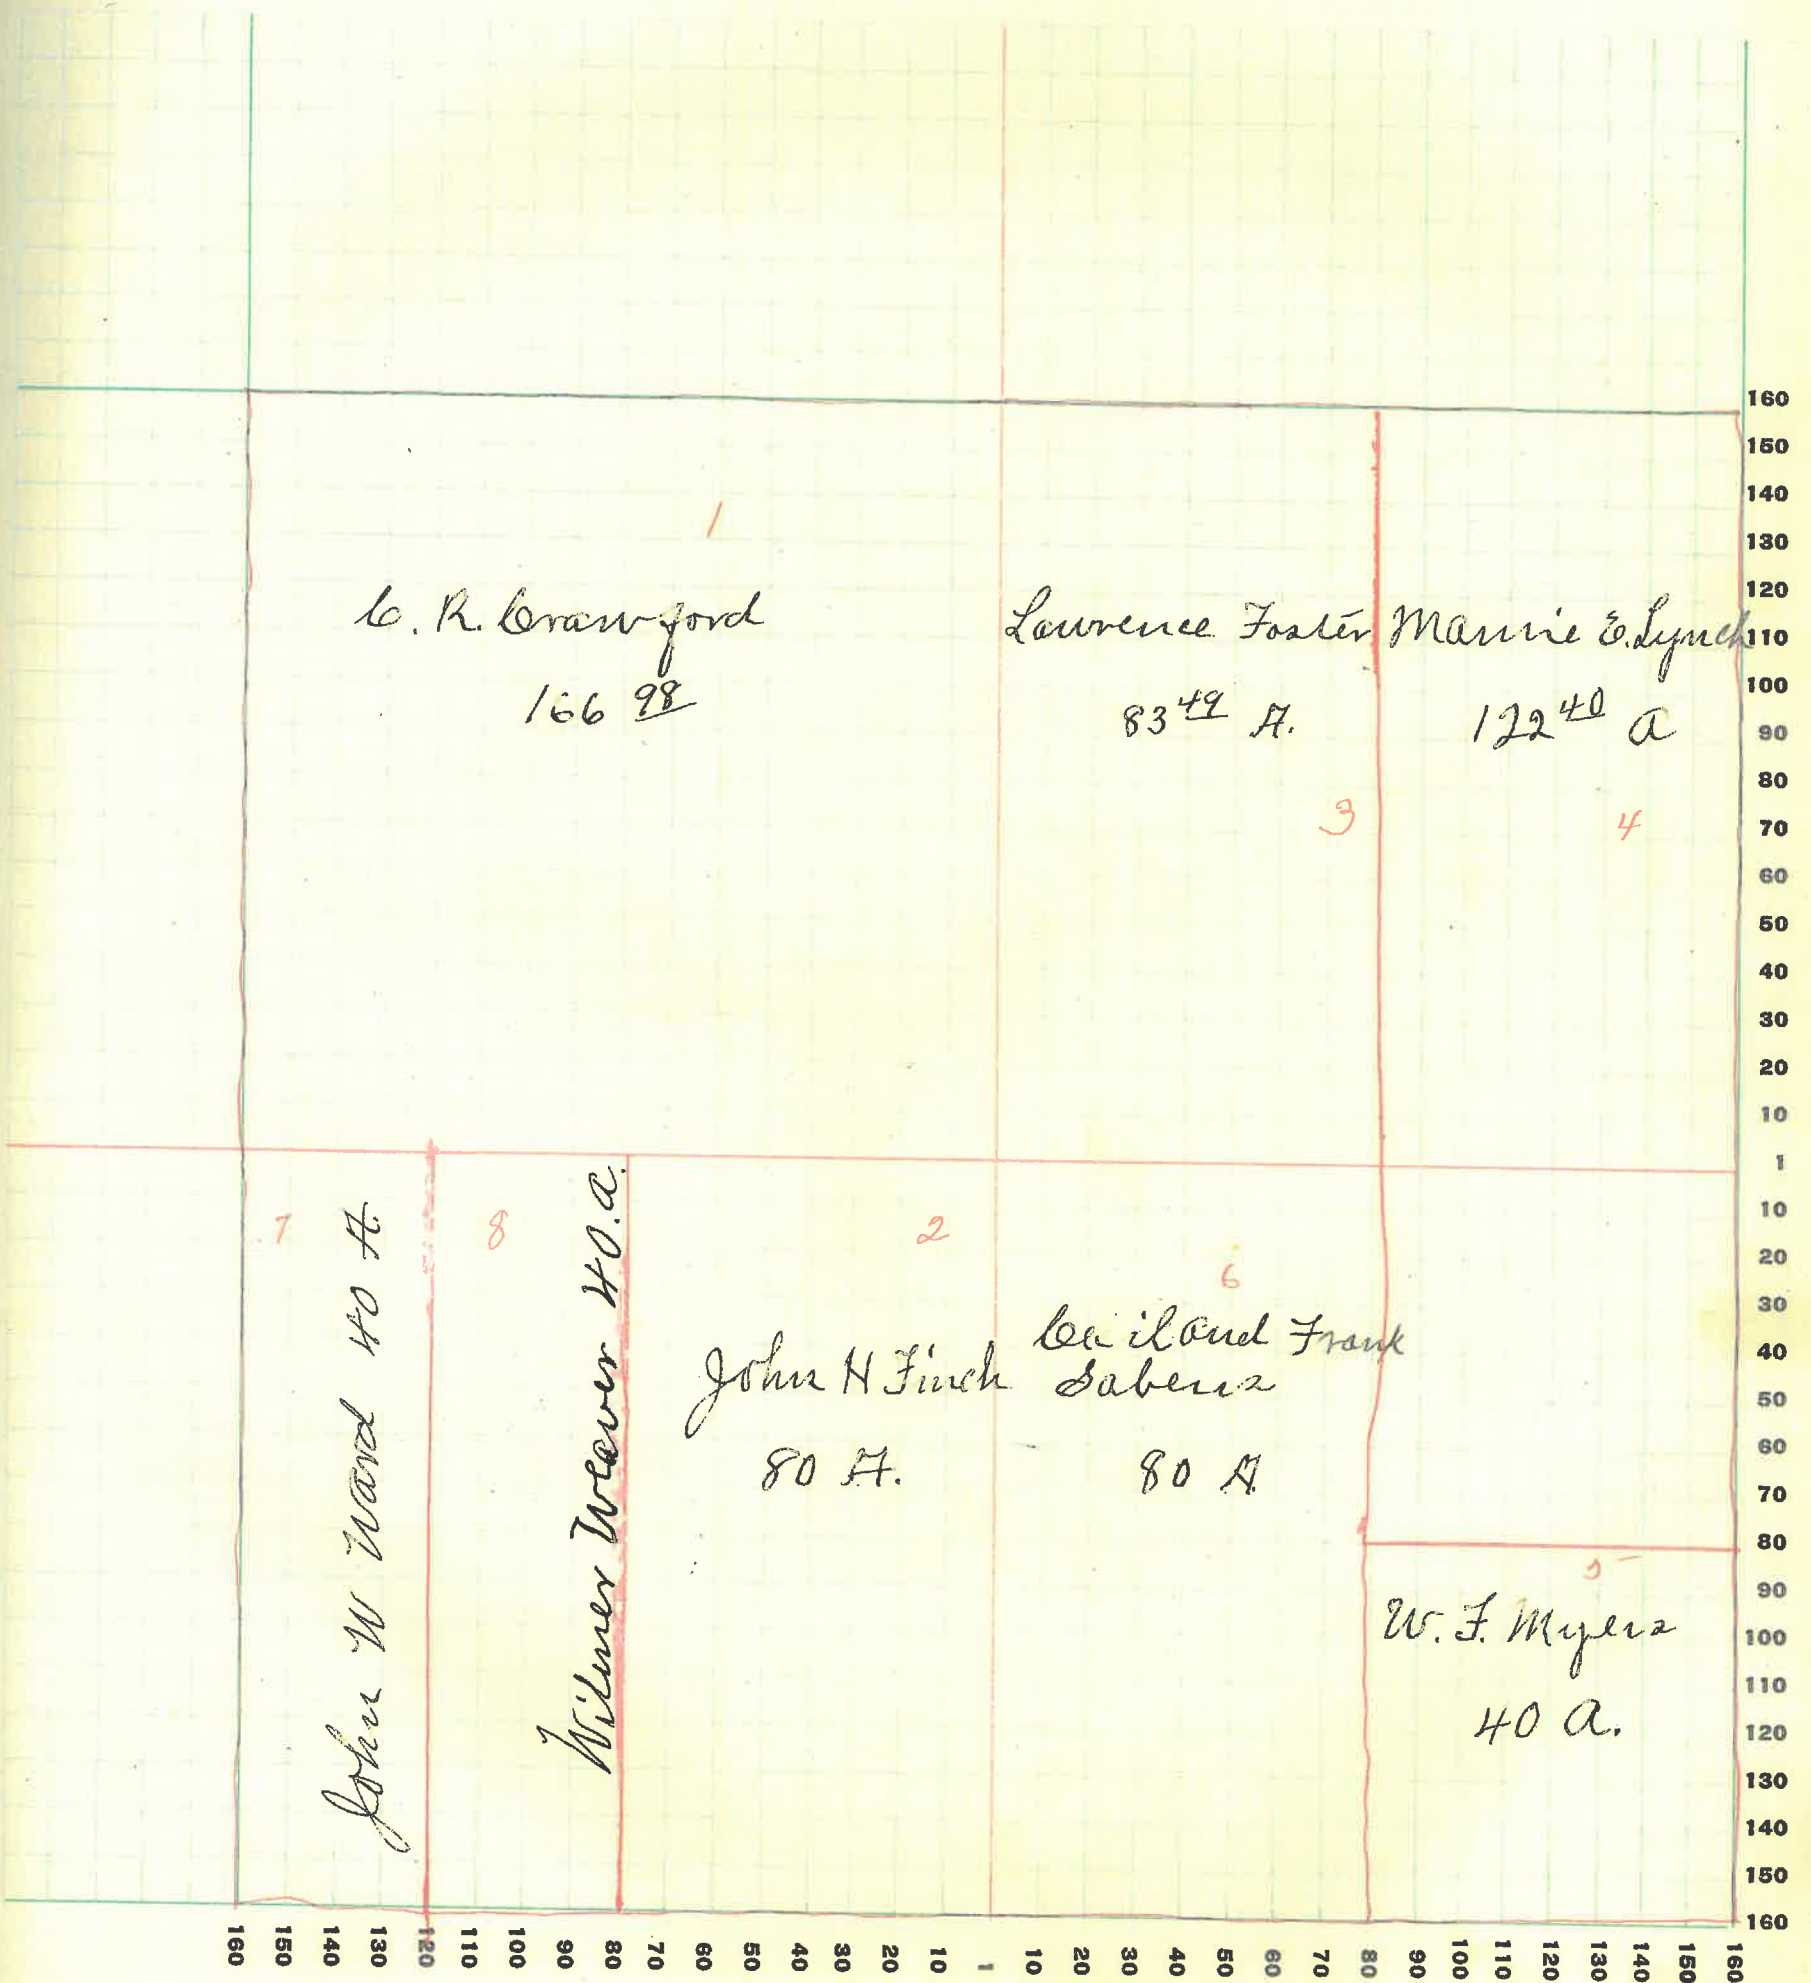 1
C. R. Crawford
166 98
Lawrence Foster
83 49 A.
3
Mamie E. Lynch
122 40 A
4
7
John W Ward 40 A.
8
Wilmer Weaver 40. a.
2
John H Finch
80 A.
6
and Frank
Sabens
80 A
5
W. F. Myers
40 A.
160
150
140
130
120
110
100
90
80
70
60
50
40
30
20
10
1
10
20
30
40
50
60
70
80
90
100
110
120
130
140
150
160
160 150 140 130 120 110 100 90 80 70 60 50 40 30 20 10 1 10 20 30 40 50 60 70 80 90 100 110 120 130 140 150 160